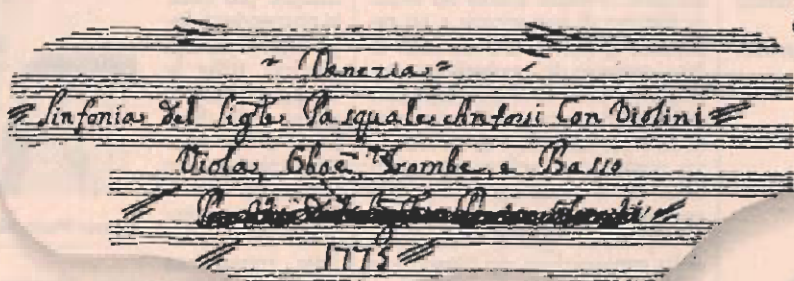 Venezia
Sinfonia Del Sigre Pasquale Anfossi Con Violini
Viola, Oboe, Trombe, e Basso
1775